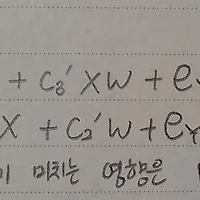 + c₃' XW + e
X + c₂' W + eY
미치는 영향은